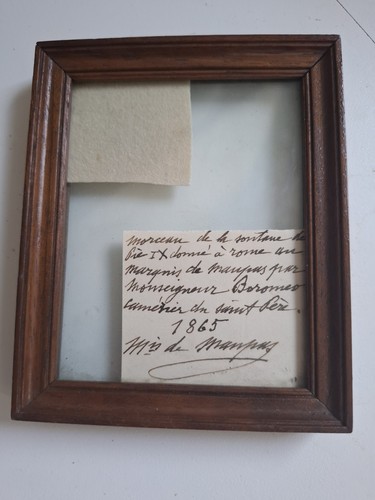 morceau de la soutane de
Pie IX donné à rome au
marquis de maupas par
Monseigneur Boromeo
camérier du saint Père.
1865
Mis de maupas